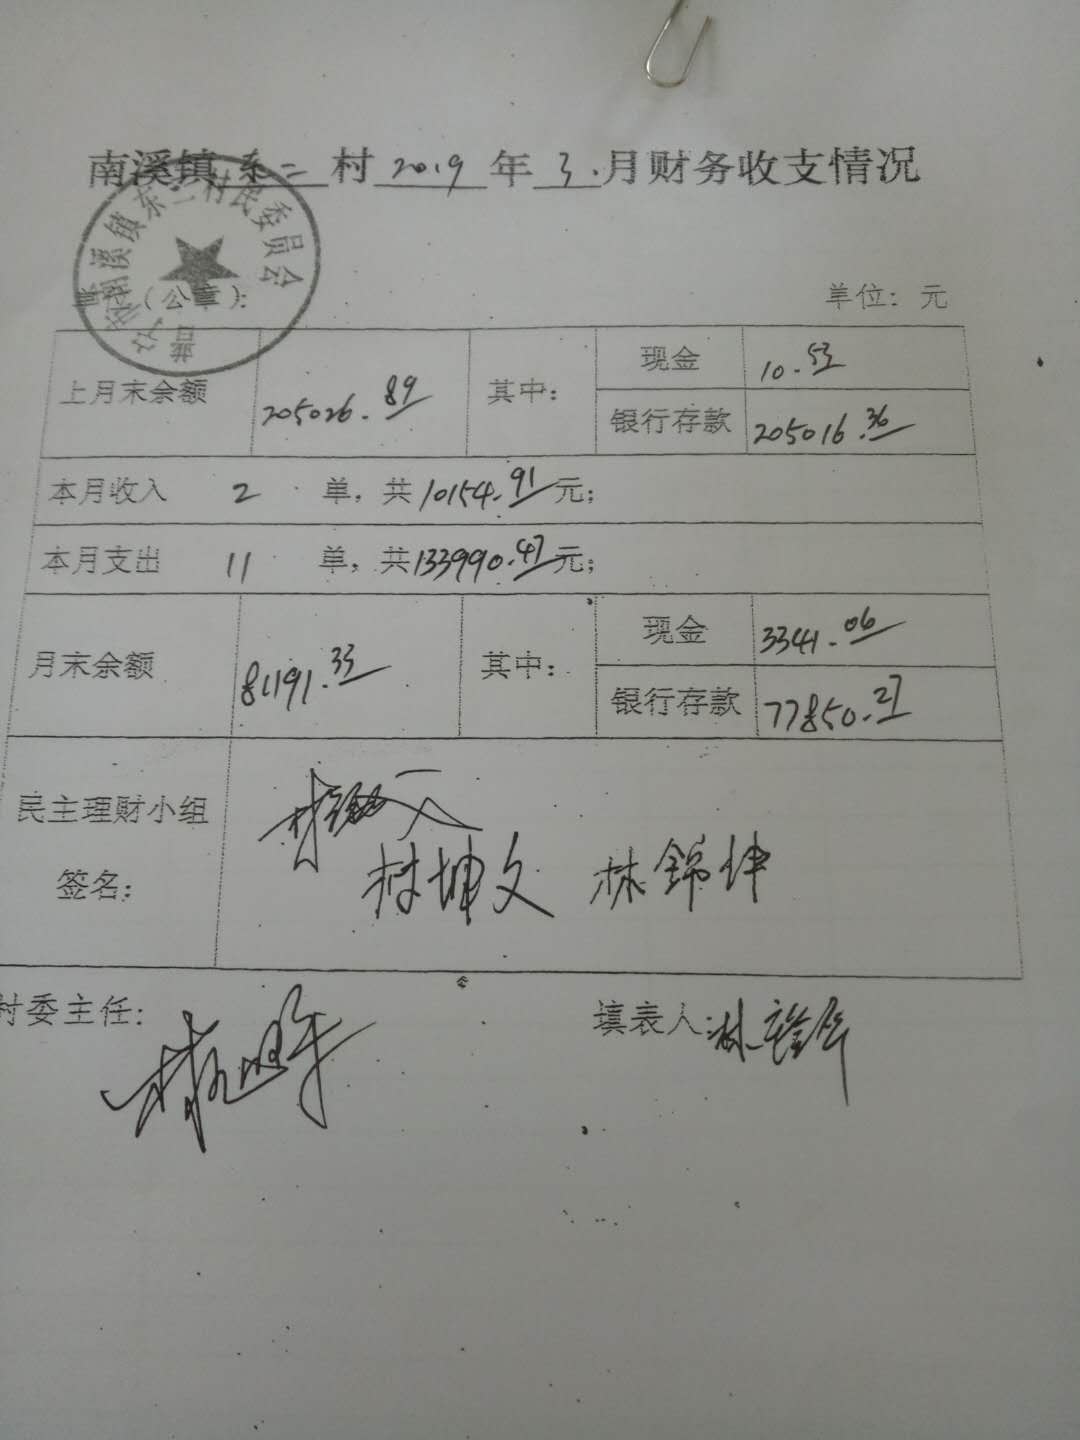 南溪镇东二村2019年3月财务收支情况
普宁市南溪镇东二村民委员会
单位（公章）：
单位：元
上月末余额 205026.89 其中：
现金 10.53
银行存款 205016.36
本月收入 2 单，共10154.91元；
本月支出 11 单，共133990.47元；
月末余额 81191.33 其中：
现金 3341.06
银行存款 77850.27
民主理财小组
签名：
林坤文 林锦坤
村委主任：
填表人：林